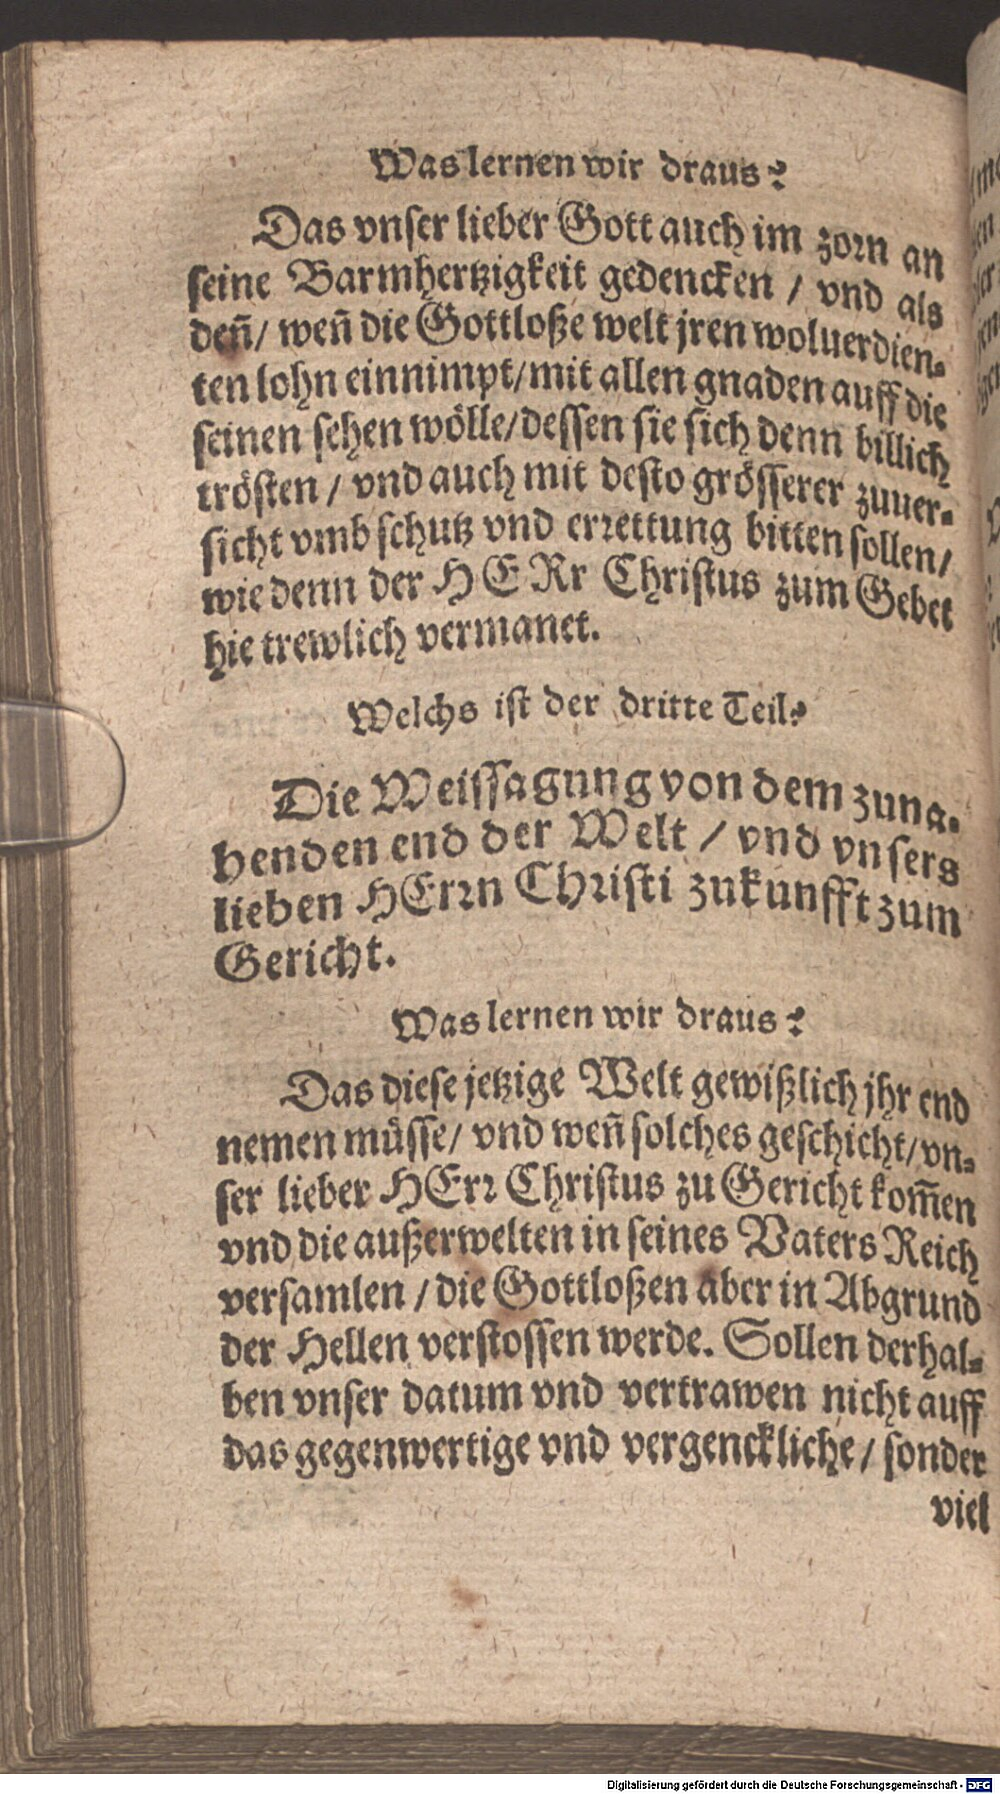 Was lernen wir draus?
Das vnser lieber Gott auch im zorn an
seine Barmhertzigkeit gedencken / vnd als
deñ / weñ die Gottloße welt jren woluerdien-
ten lohn einnimpt / mit allen gnaden auff die
seinen sehen wölle / dessen sie sich denn billich
trösten / vnd auch mit desto grösserer zuuer-
sicht vmb schutz vnd errettung bitten sollen /
wie denn der HERr Christus zum Gebet
hie trewlich vermanet.
Welchs ist der dritte Teil?
Die Weissagung von dem zuna-
henden end der Welt / vnd vnsers
lieben HErrn Christi zukunfft zum
Gericht.
Was lernen wir draus?
Das diese jetzige Welt gewißlich jhr end
nemen müsse / vnd weñ solches geschicht / vn-
ser lieber HErr Christus zu Gericht kom̃en
vnd die außerwelten in seines Vaters Reich
versamlen / die Gottloßen aber in Abgrund
der Hellen verstossen werde. Sollen derhal-
ben vnser datum vnd vertrawen nicht auff
das gegenwertige vnd vergenckliche / sonder
viel
Digitalisierung gefördert durch die Deutsche Forschungsgemeinschaft - DFG